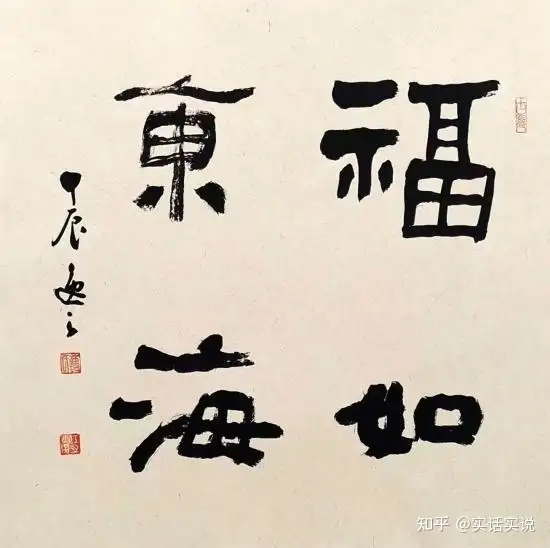 福如
東海
甲辰
知乎 @实话实说